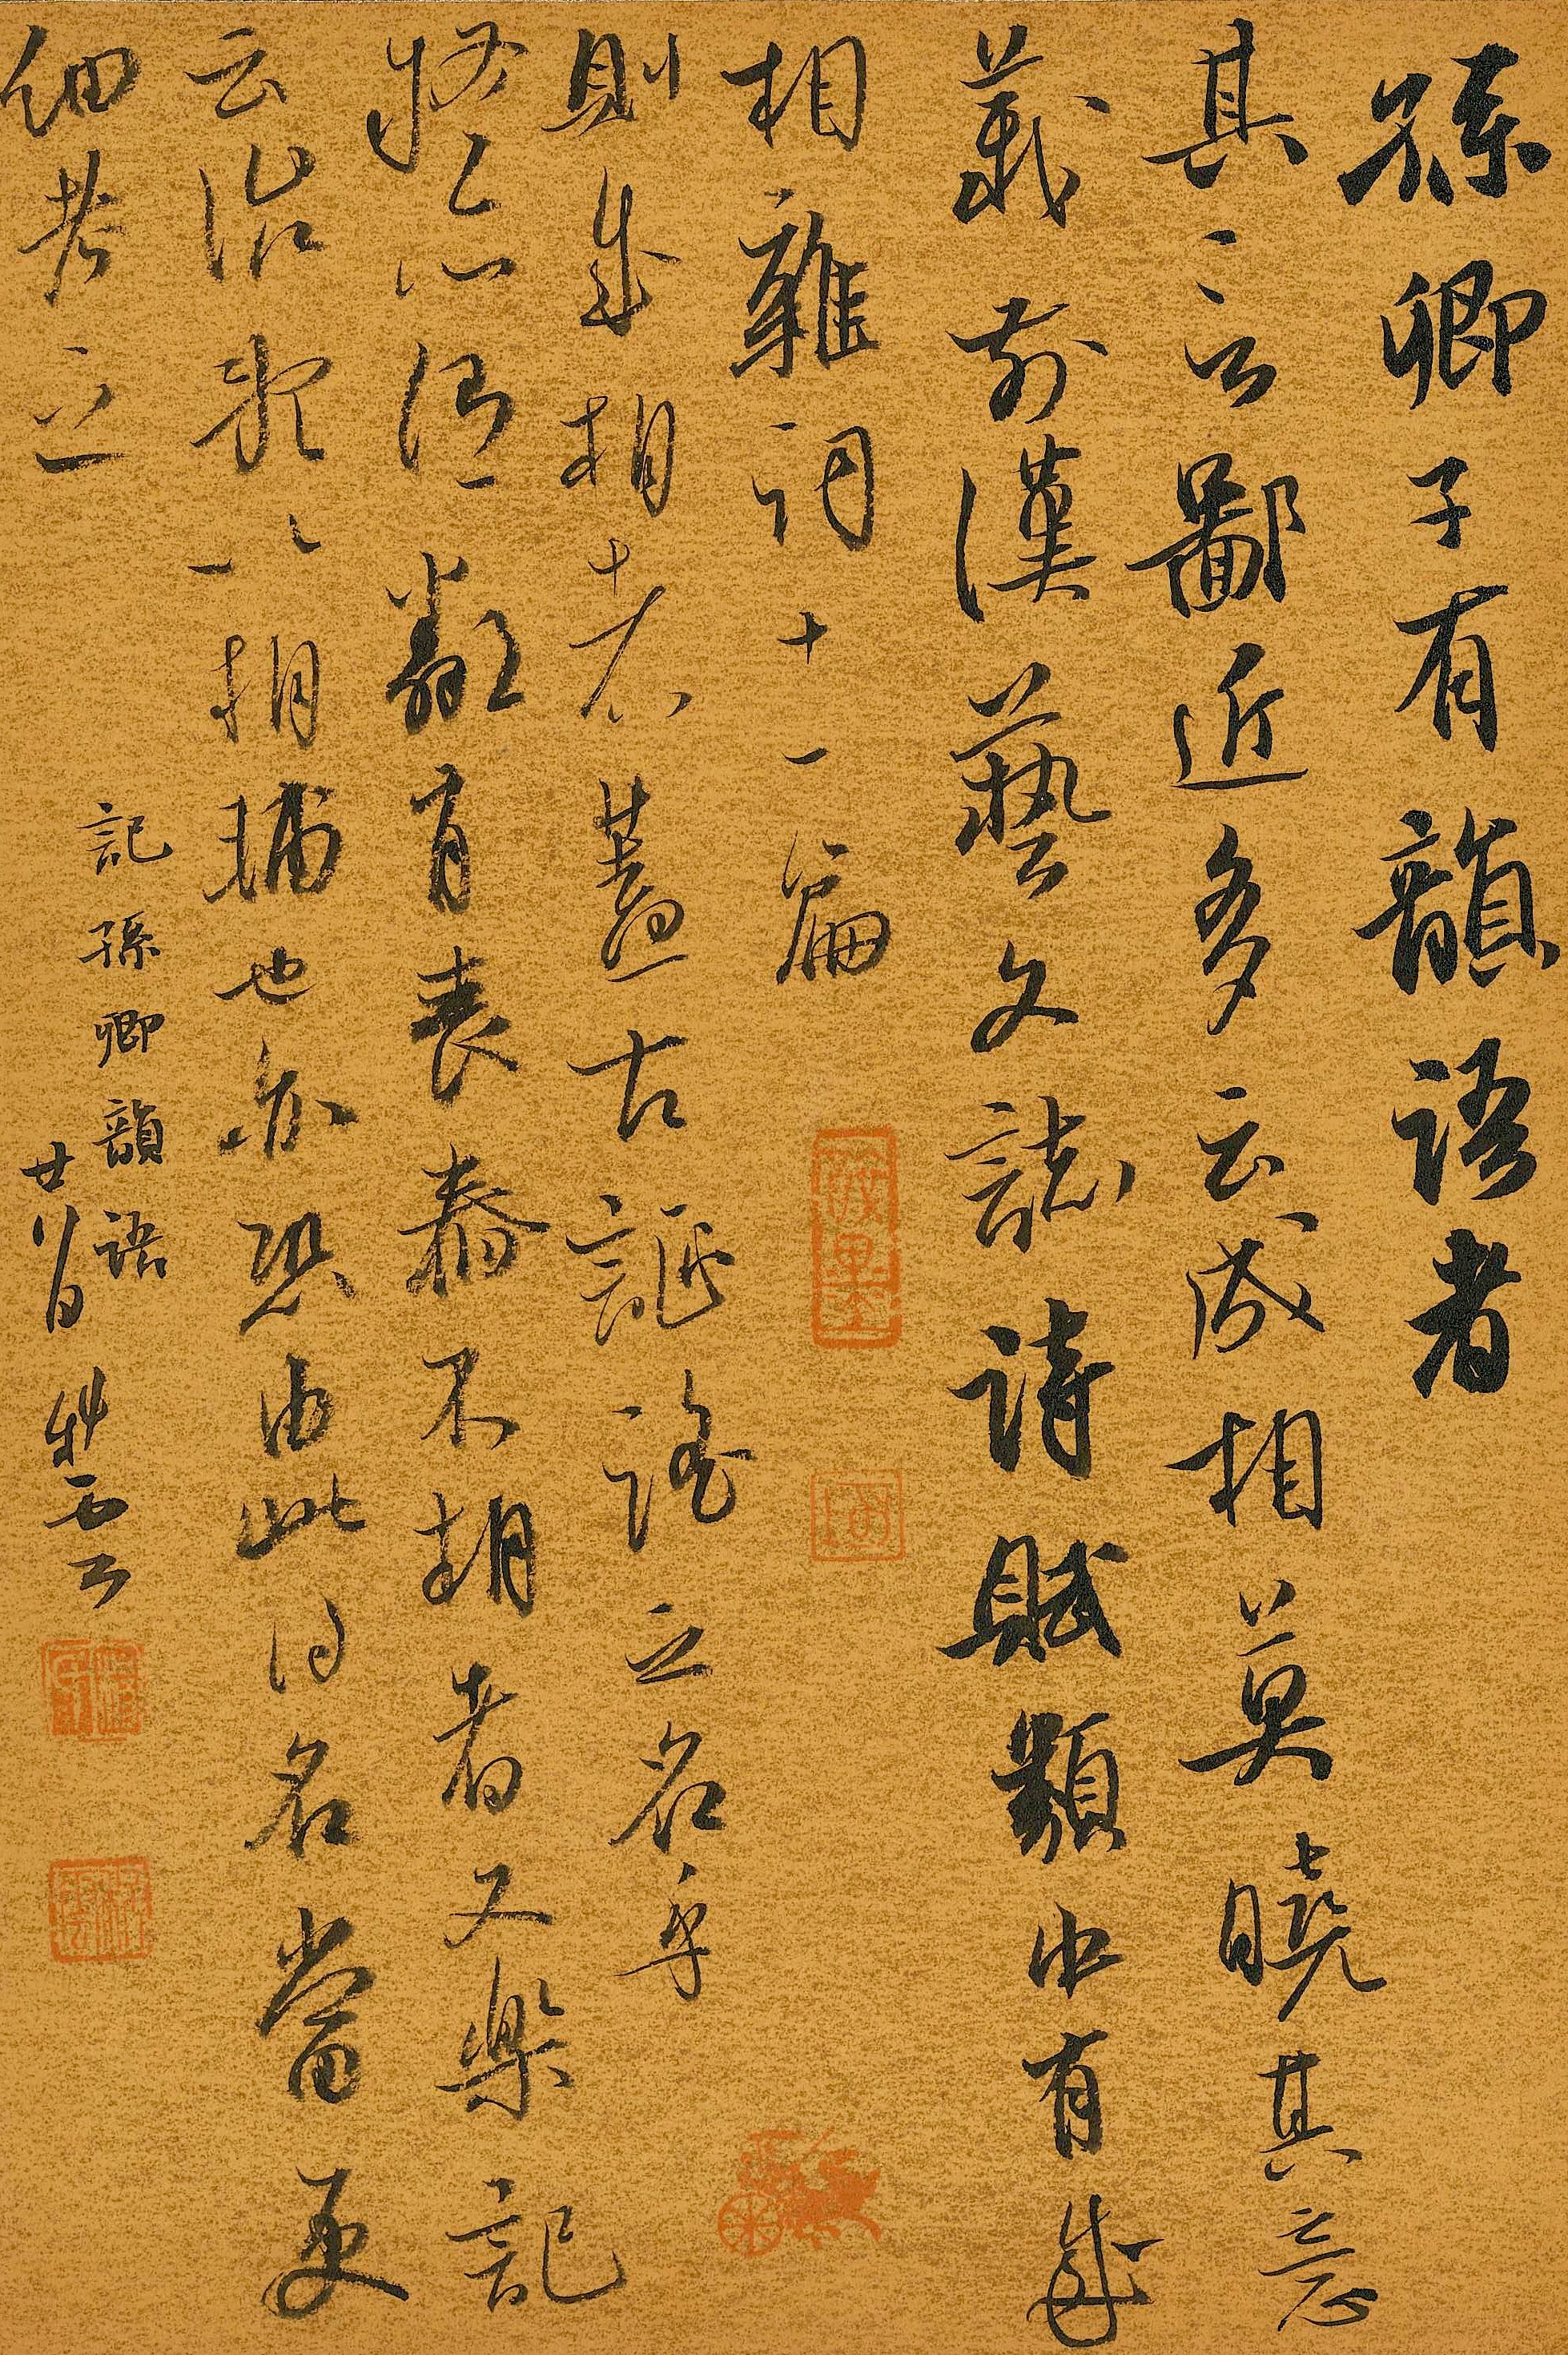 孫卿子有韻語者
其言鄙近多云成相莫曉其意
義前漢藝文誌詩賦類中有成
相雜詞十一篇
則成相者蓋古謳謠之名乎
疑所謂鄰有喪舂不相者又樂記
云治亂以相輔也亦恐由此得名當更
細考之
記孫卿韻語